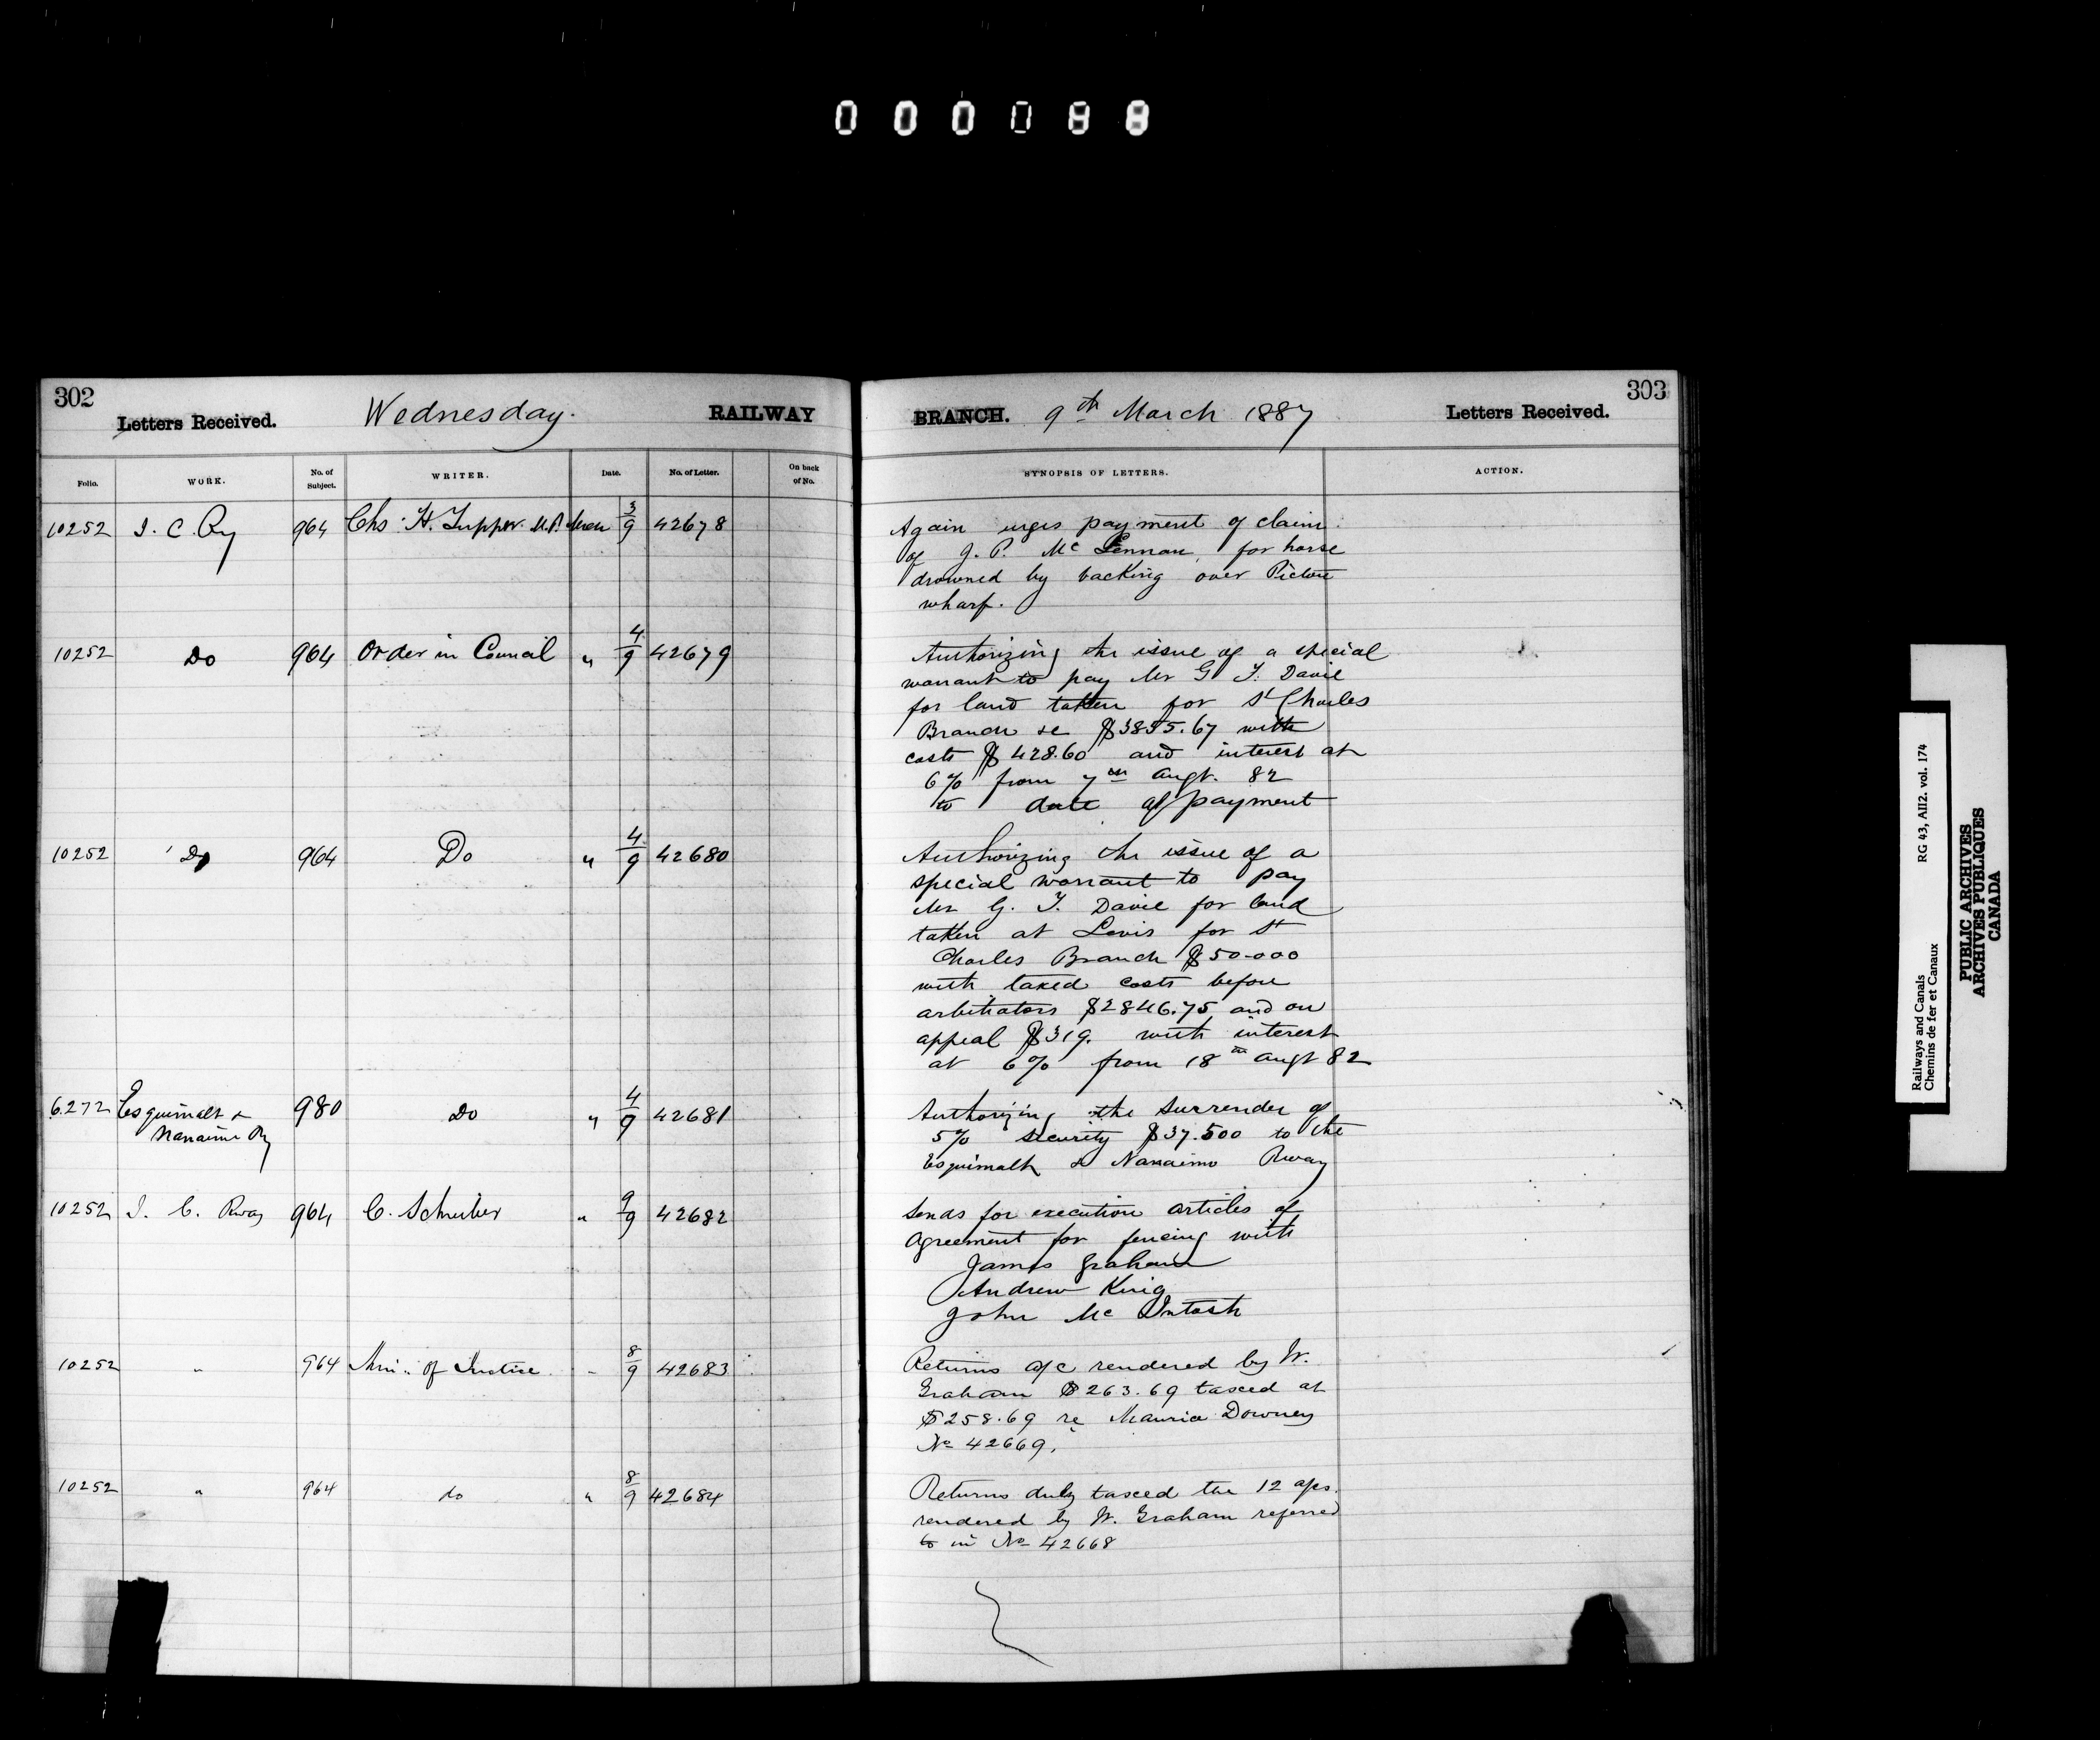 000088
302
Letters Received.
Wednesday.
RAILWAY
Folio.
WORK.
No. of Subject.
WRITER.
Date.
No. of Letter.
On back of No.
10252 I. C. Ry 964 Chs. H. Tupper M.P. Mch 3/9 42678
10252 Do 964 Order in Council " 4/9 42679
10252 Do 964 Do " 4/9 42680
6272 Esquimalt & 980 Do " 4/9 42681
Nanaimo Ry
10252 I. C. Rway 964 C. Schreiber " 9/9 42682
10252 " 964 Min. of Justice " 8/9 42683
10252 " 964 do " 8/9 42684
BRANCH.
9th March 1887
Letters Received.
303
SYNOPSIS OF LETTERS.
ACTION.
Again urges payment of claim
of J. P. McLennan, for horse
drowned by backing over Pictou
wharf.
Authorizing the issue of a special
warrant to pay Mr G T. Davie
for land taken for St Charles
Branch $3855.67 with
costs $428.60 and interest at
6% from 7th Augt. 82
to date of payment
Authorizing the issue of a
special warrant to pay
Mr G. T. Davie for land
taken at Levis for St
Charles Branch $50.000
with taxed costs before
arbitrators $2846.75 and on
appeal $319. with interest
at 6% from 18th Augt 82
Authorizing the surrender of
5% security $37.500 to the
Esquimalt & Nanaimo Rway
Sends for execution articles of
Agreement for fencing with
James Graham
Andrew King
John McIntosh
Returns a/c rendered by W.
Graham $263.69 taxed at
$258.69 re Maurice Downey
No 42669.
Returns duly taxed the 12 a/cs.
rendered by W. Graham referred
to in No 42668
Railways and Canals RG 43, AII2. vol. 174
Chemins de fer et Canaux
PUBLIC ARCHIVES
ARCHIVES PUBLIQUES
CANADA